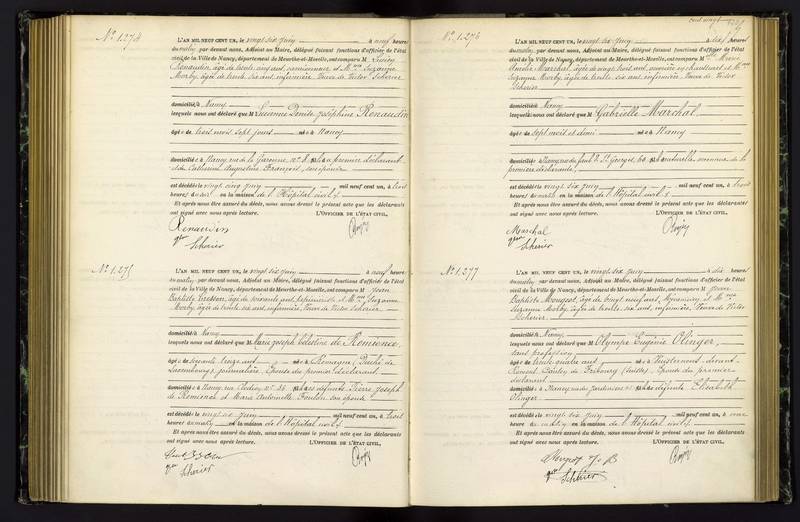 N° 1.274
L'AN MIL NEUF CENT UN, le vingt six Juin à neuf heures
du matin, par devant nous, Adjoint au Maire, délégué faisant fonctions d'officier de l'état
civil de la Ville de Nancy, département de Meurthe-et-Moselle, ont comparu M
Renaudin, âgé de trente ans, et Mme Suzanne
Morby, âgée de trente six ans, infirmière, Veuve de Victor Scherier
domiciliés à Nancy
lesquels nous ont déclaré que M Lucienne Denise Joséphine Renaudin
âgée de trois mois sept jours née à Nancy
domiciliée à Nancy, rue de la Garenne, n° fille du premier déclarant
et de Catherine Augustine François, son épouse
est décédée le vingt cinq Juin mil neuf cent un, à trois
heures du soir en la maison de l'Hôpital civil
Et après nous être assuré du décès, nous avons dressé le présent acte que les déclarants
ont signé avec nous après lecture. L'OFFICIER DE L'ÉTAT CIVIL,
Renaudin
Scherier
N° 1.275
L'AN MIL NEUF CENT UN, le vingt six Juin à neuf heures
du matin, par devant nous, Adjoint au Maire, délégué faisant fonctions d'officier de l'état
civil de la Ville de Nancy, département de Meurthe-et-Moselle, ont comparu M Jean
Baptiste âgé de soixante ans, et Mme Suzanne
Morby, âgée de trente six ans, infirmière, Veuve de Victor Scherier
domiciliés à Nancy
lesquels nous ont déclaré que M Marie Joseph Célestine de Remience,
âgée de soixante treize ans née à Remagne (Duché de
Luxembourg), journalière, Épouse du premier déclarant
domiciliée à Nancy, rue n° 34 fille des défunts Pierre Joseph
de Remience et Marie Antoinette son épouse
est décédée le vingt six Juin mil neuf cent un, à trois
heures du matin en la maison de l'Hôpital civil
Et après nous être assuré du décès, nous avons dressé le présent acte que les déclarants
ont signé avec nous après lecture. L'OFFICIER DE L'ÉTAT CIVIL,
Scherier
N° 1.276
L'AN MIL NEUF CENT UN, le vingt six Juin à dix heures
du matin, par devant nous, Adjoint au Maire, délégué faisant fonctions d'officier de l'état
civil de la Ville de Nancy, département de Meurthe-et-Moselle, ont comparu M Marie
Marchal, âgée de vingt huit ans, ouvrière en chaussures et Mme
Suzanne Morby, âgée de trente six ans, infirmière, Veuve de Victor
Scherier
domiciliés à Nancy
lesquels nous ont déclaré que M Gabrielle Marchal
âgée de sept mois et demi née à Nancy
domiciliée à Nancy, rue du faub. St Georges, fille naturelle reconnue de la
première déclarante,
est décédée le vingt six Juin mil neuf cent un, à trois
heures du matin en la maison de l'Hôpital civil
Et après nous être assuré du décès, nous avons dressé le présent acte que les déclarants
ont signé avec nous après lecture. L'OFFICIER DE L'ÉTAT CIVIL,
Marchal
Scherier
N° 1.277
L'AN MIL NEUF CENT UN, le vingt six Juin à dix heures
du matin, par devant nous, Adjoint au Maire, délégué faisant fonctions d'officier de l'état
civil de la Ville de Nancy, département de Meurthe-et-Moselle, ont comparu M
Baptiste Mougeot, âgé de vingt neuf ans, et Mme
Suzanne Morby, âgée de trente six ans, infirmière, Veuve de Victor
Scherier
domiciliés à Nancy,
lesquels nous ont déclaré que M Olympe Eugénie Olinger,
sans profession,
âgée de trente quatre ans née à Villarimboud devant
Romont, Canton de Fribourg (Suisse), Épouse du premier
déclarant
domiciliée à Nancy, rue des Jardiniers fille de défunte Élisabeth
Olinger
est décédée le vingt six Juin mil neuf cent un, à onze
heures du matin en la maison de l'Hôpital civil
Et après nous être assuré du décès, nous avons dressé le présent acte que les déclarants
ont signé avec nous après lecture. L'OFFICIER DE L'ÉTAT CIVIL,
Scherier